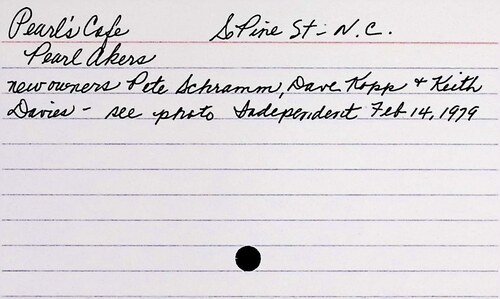 Pearl's Cafe S Pine St - N.C.
Pearl Akers
new owners Pete Schramm, Dave Kopp & Keith
Davies - see photo Independent Feb 14, 1979